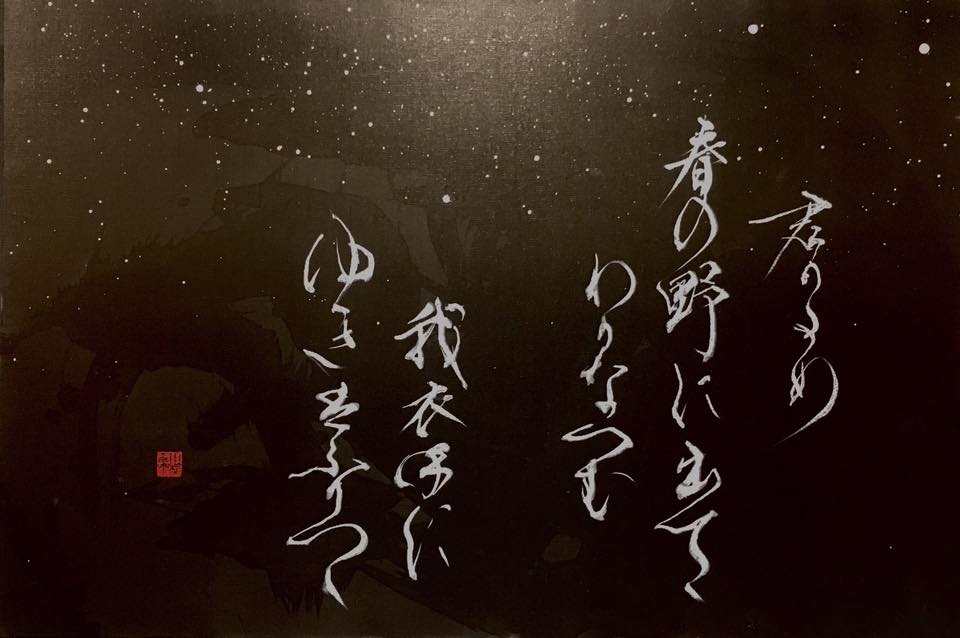 君かため
春の野に出て
わかなつむ
我衣手に
ゆきはふりつゝ